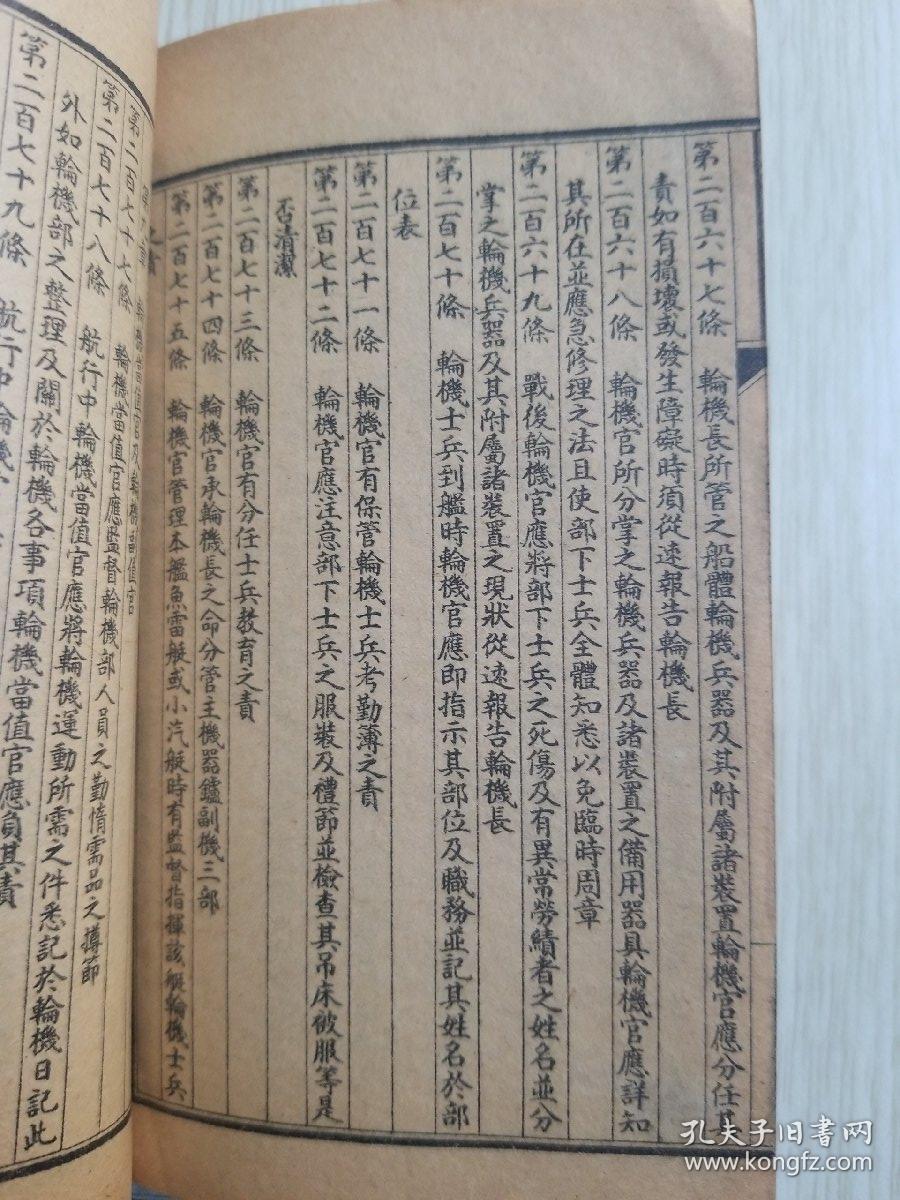 第二百六十七條　輪機長所管之船體輪機兵器及其附屬諸裝置輪機官應分任其
責如有損壞或發生障礙時須從速報告輪機長
第二百六十八條　輪機官所分掌之輪機兵器及諸裝置之備用器具輪機官應詳知
其所在並應急修理之法且使部下士兵全體知悉以免臨時周章
第二百六十九條　戰後輪機官應將部下士兵之死傷及有異常勞績者之姓名並分
掌之輪機兵器及其附屬諸裝置之現狀從速報告輪機長
第二百七十條　輪機士兵到艦時輪機官應即指示其部位及職務並記其姓名於部
位表
第二百七十一條　輪機官有保管輪機士兵考勤簿之責
第二百七十二條　輪機官應注意部下士兵之服裝及禮節並檢查其吊床被服等是
否清潔
第二百七十三條　輪機官有分任士兵教育之責
第二百七十四條　輪機官承輪機長之命分管主機器鑪副機三部
第二百七十五條　輪機官管理本艦魚雷艇或小汽艇時有監督指揮該艇輪機士兵
之責
章　輪機當值官及輪機副值官
第二百七十七條　輪機當值官應監督輪機部人員之勤惰需品之撙節
第二百七十八條　航行中輪機當值官應將輪機運動所需之件悉記於輪機日記此
外如輪機部之整理及關於輪機各事項輪機當值官應負其責
第二百七十九條　航行中輪機
孔夫子旧书网
www.kongfz.com